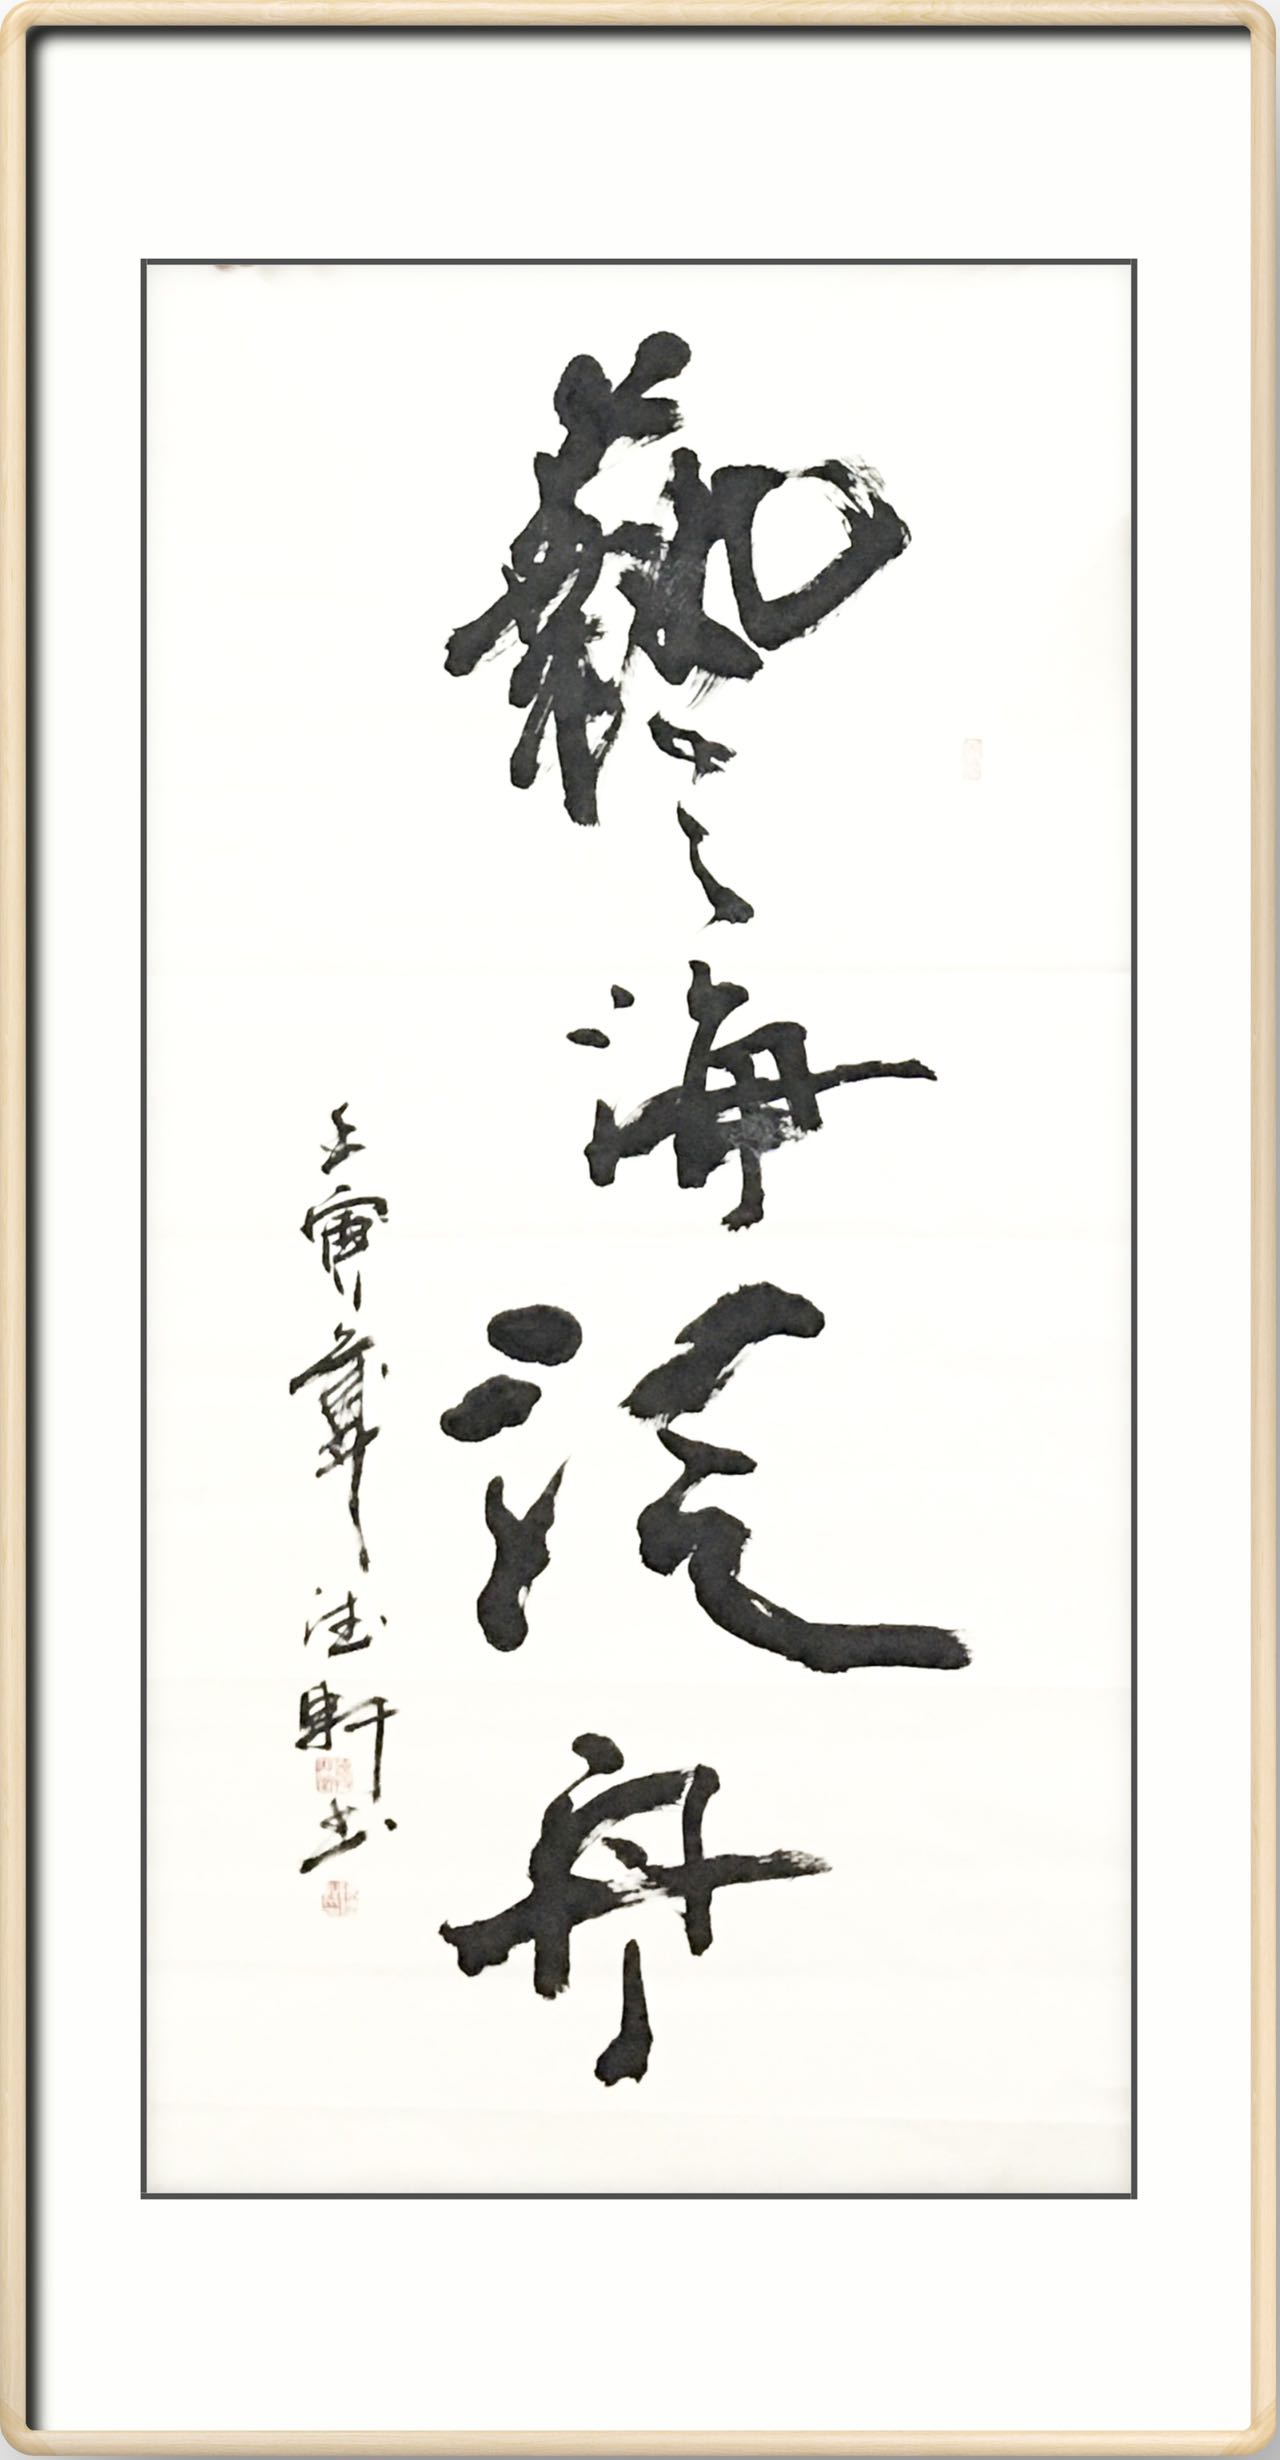 藝海泛舟
壬寅年德軒書